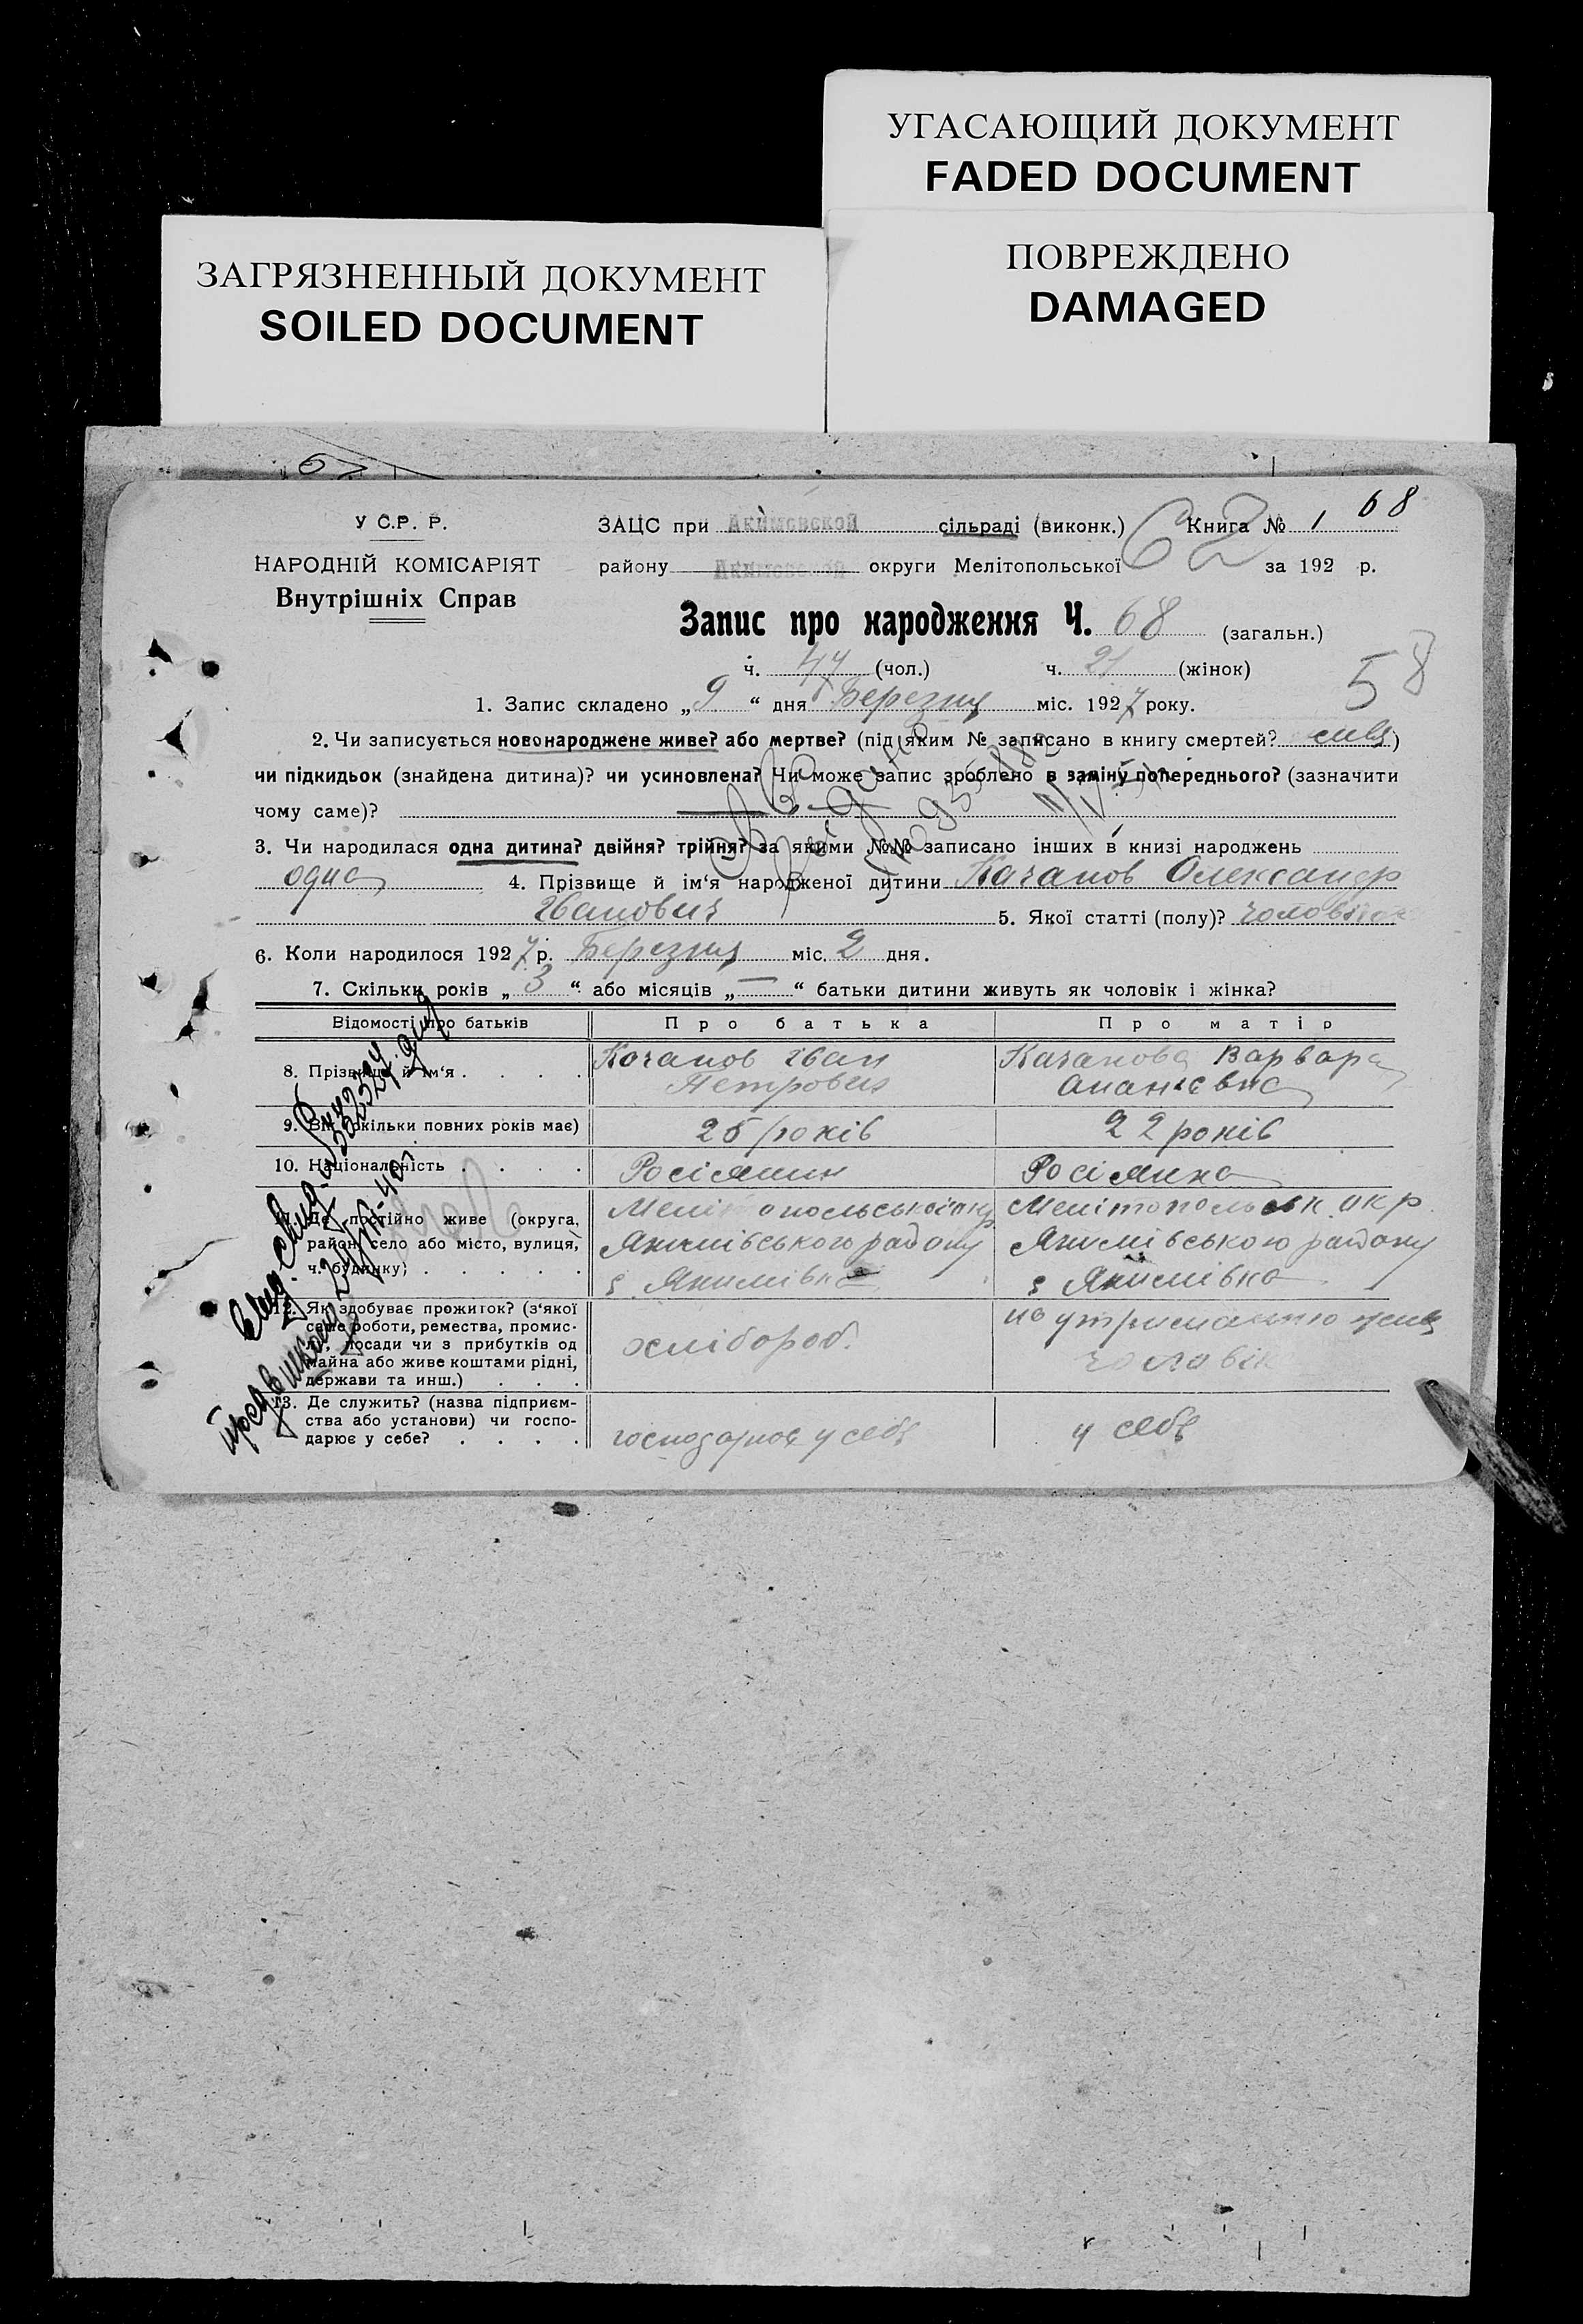 УГАСАЮЩИЙ ДОКУМЕНТ
FADED DOCUMENT
ЗАГРЯЗНЕННЫЙ ДОКУМЕНТ
SOILED DOCUMENT
ПОВРЕЖДЕНО
DAMAGED
68
У С.Р. Р.
ЗАЦС при Акимовской сільраді (виконк.) 62 Книга № 1
НАРОДНІЙ КОМІСАРІЯТ
Внутрішніх Справ
району Акимовской округи Мелітопольської за 192 р.
Запис про народження Ч. 68 (загальн.)
ч. 44 (чол.) ч. 21 (жінок)
58
1. Запис складено „9“ дня Березня міс. 1927 року.
2. Чи записується новонароджене живе? або мертве? (під яким № записано в книгу смертей?)
чи підкидьок (знайдена дитина)? чи усиновлена? Чи може запис зроблено в заміну попереднього? (зазначити
чому саме)?
3. Чи народилася одна дитина? двійня? трійня? за якими №№ записано інших в книзі народжень
одна 4. Прізвище й ім‘я народженої дитини Качанов Олександр
Іванович 5. Якої статті (полу)? чоловіча
6. Коли народилося 1927 р. Березня міс. 2 дня.
7. Скільки років „3“ або місяців „—“ батьки дитини живуть як чоловік і жінка?
Відомості про батьків Про батька Про матір
8. Прізвище й ім‘я . . . . Качанов Іван Петрович Качанова Варвара Ананієвна
9. Вік (скільки повних років має) 25 років 22 років
10. Національність . . . . Росіянин Росіянка
11. Де постійно живе (округа,
район, село або місто, вулиця,
ч. будинку) . . . . .
Мелітопольської окр
Якимівського району
с. Якимівка
Мелітопольськ. окр.
Якимівського району
с Якимівка
12. Як здобуває прожиток? (з‘якої
саме роботи, ремества, промис-
лу, посади чи з прибутків од
майна або живе коштами рідні,
держави та инш.) . . .
хлібороб.
на утриманню
чоловік
13. Де служить? (назва підприєм-
ства або установи) чи госпо-
дарює у себе? . . . .
господарює у себе
у себе